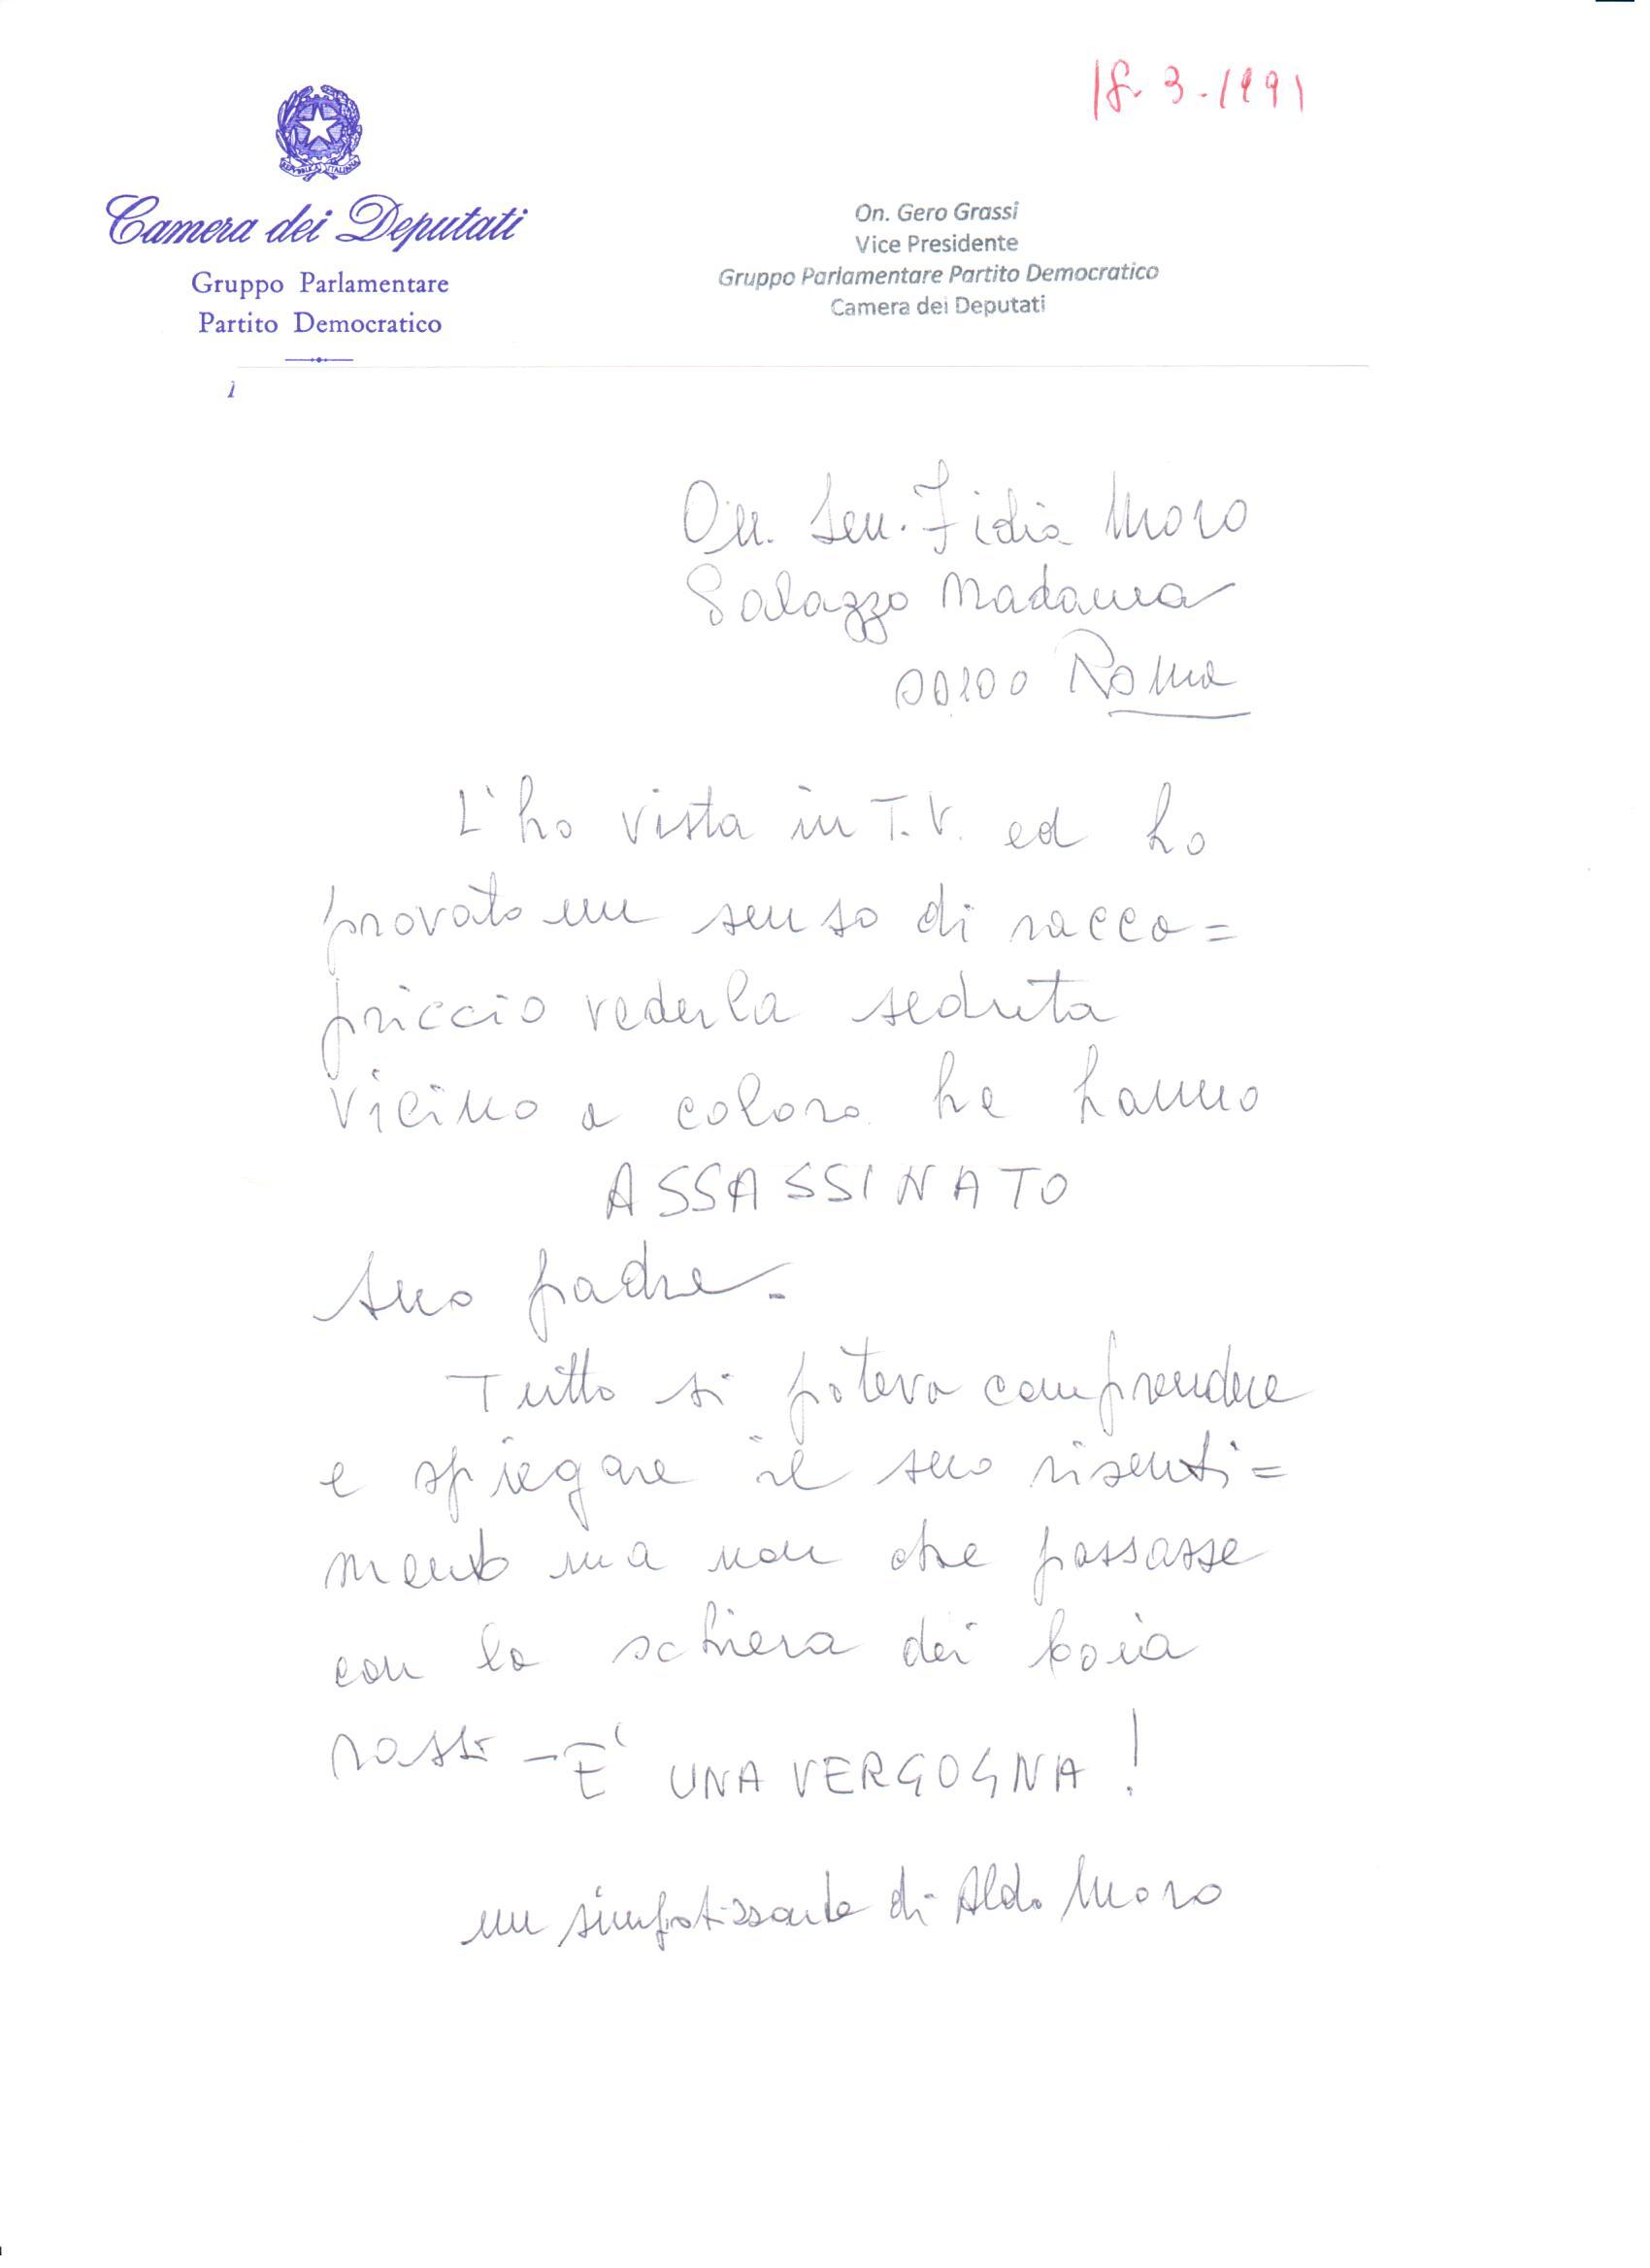 18-3-1991
REPVBBLICA ITALIANA
Camera dei Deputati
Gruppo Parlamentare
Partito Democratico
On. Gero Grassi
Vice Presidente
Gruppo Parlamentare Partito Democratico
Camera dei Deputati
1
On. Sen. Fidia Moro
Palazzo Madama
00100 Roma
L'ho vista in T.V. ed ho
provato un senso di racca=
priccio vederla seduta
vicino a coloro he hanno
ASSASSINATO
suo padre.
Tutto si poteva comprendere
e spiegare il suo risenti=
mento ma non che passasse
con la schiera dei boia
rossi - E' UNA VERGOGNA!
un simpatizzante di Aldo Moro